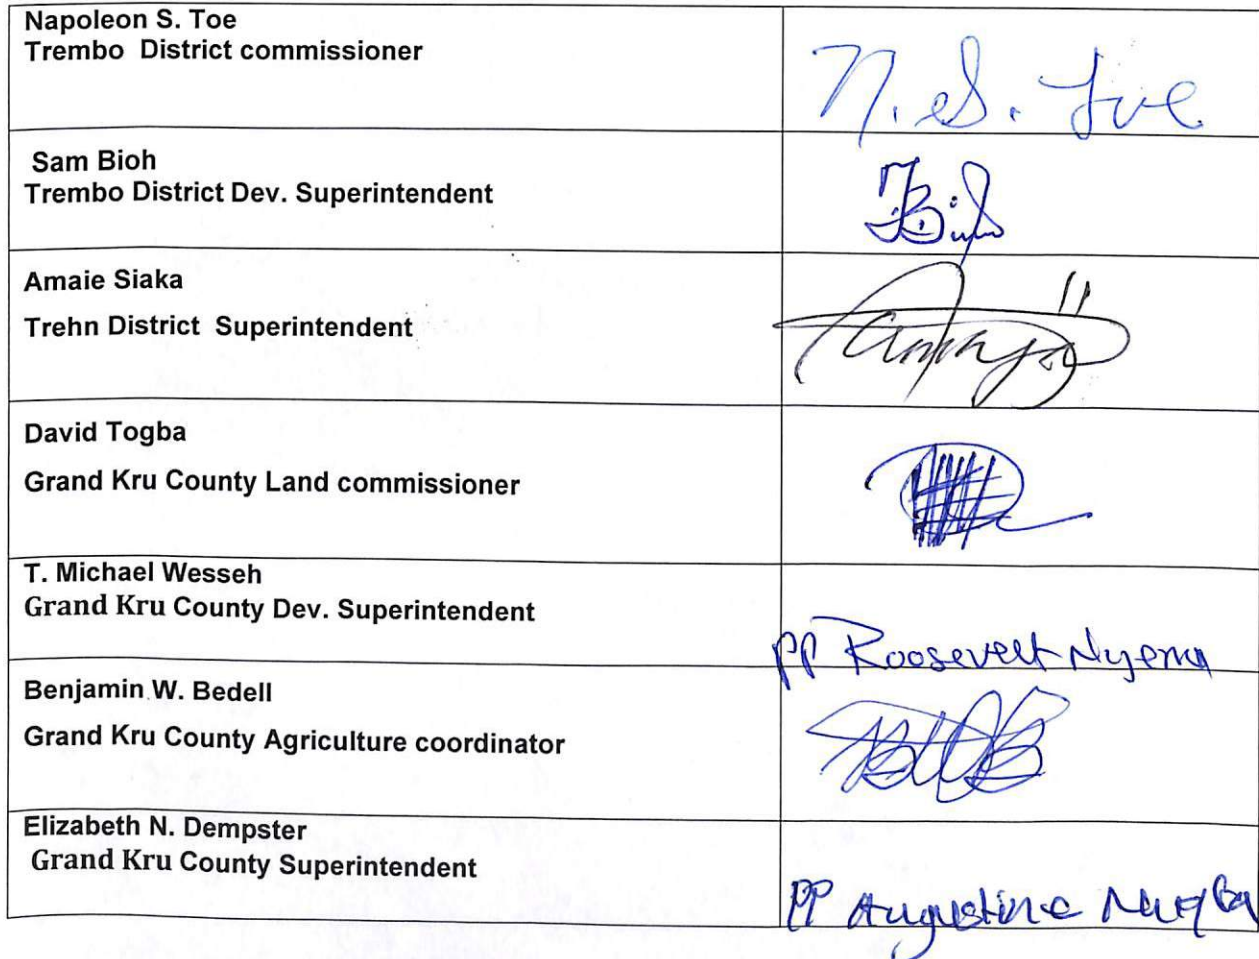 Napoleon S. Toe
Trembo District commissioner
N. S. Toe
Sam Bioh
Trembo District Dev. Superintendent
Amaie Siaka
Trehn District Superintendent
David Togba
Grand Kru County Land commissioner
T. Michael Wesseh
Grand Kru County Dev. Superintendent
PP Roosevelt Nyema
Benjamin W. Bedell
Grand Kru County Agriculture coordinator
Elizabeth N. Dempster
Grand Kru County Superintendent
PP Augustine